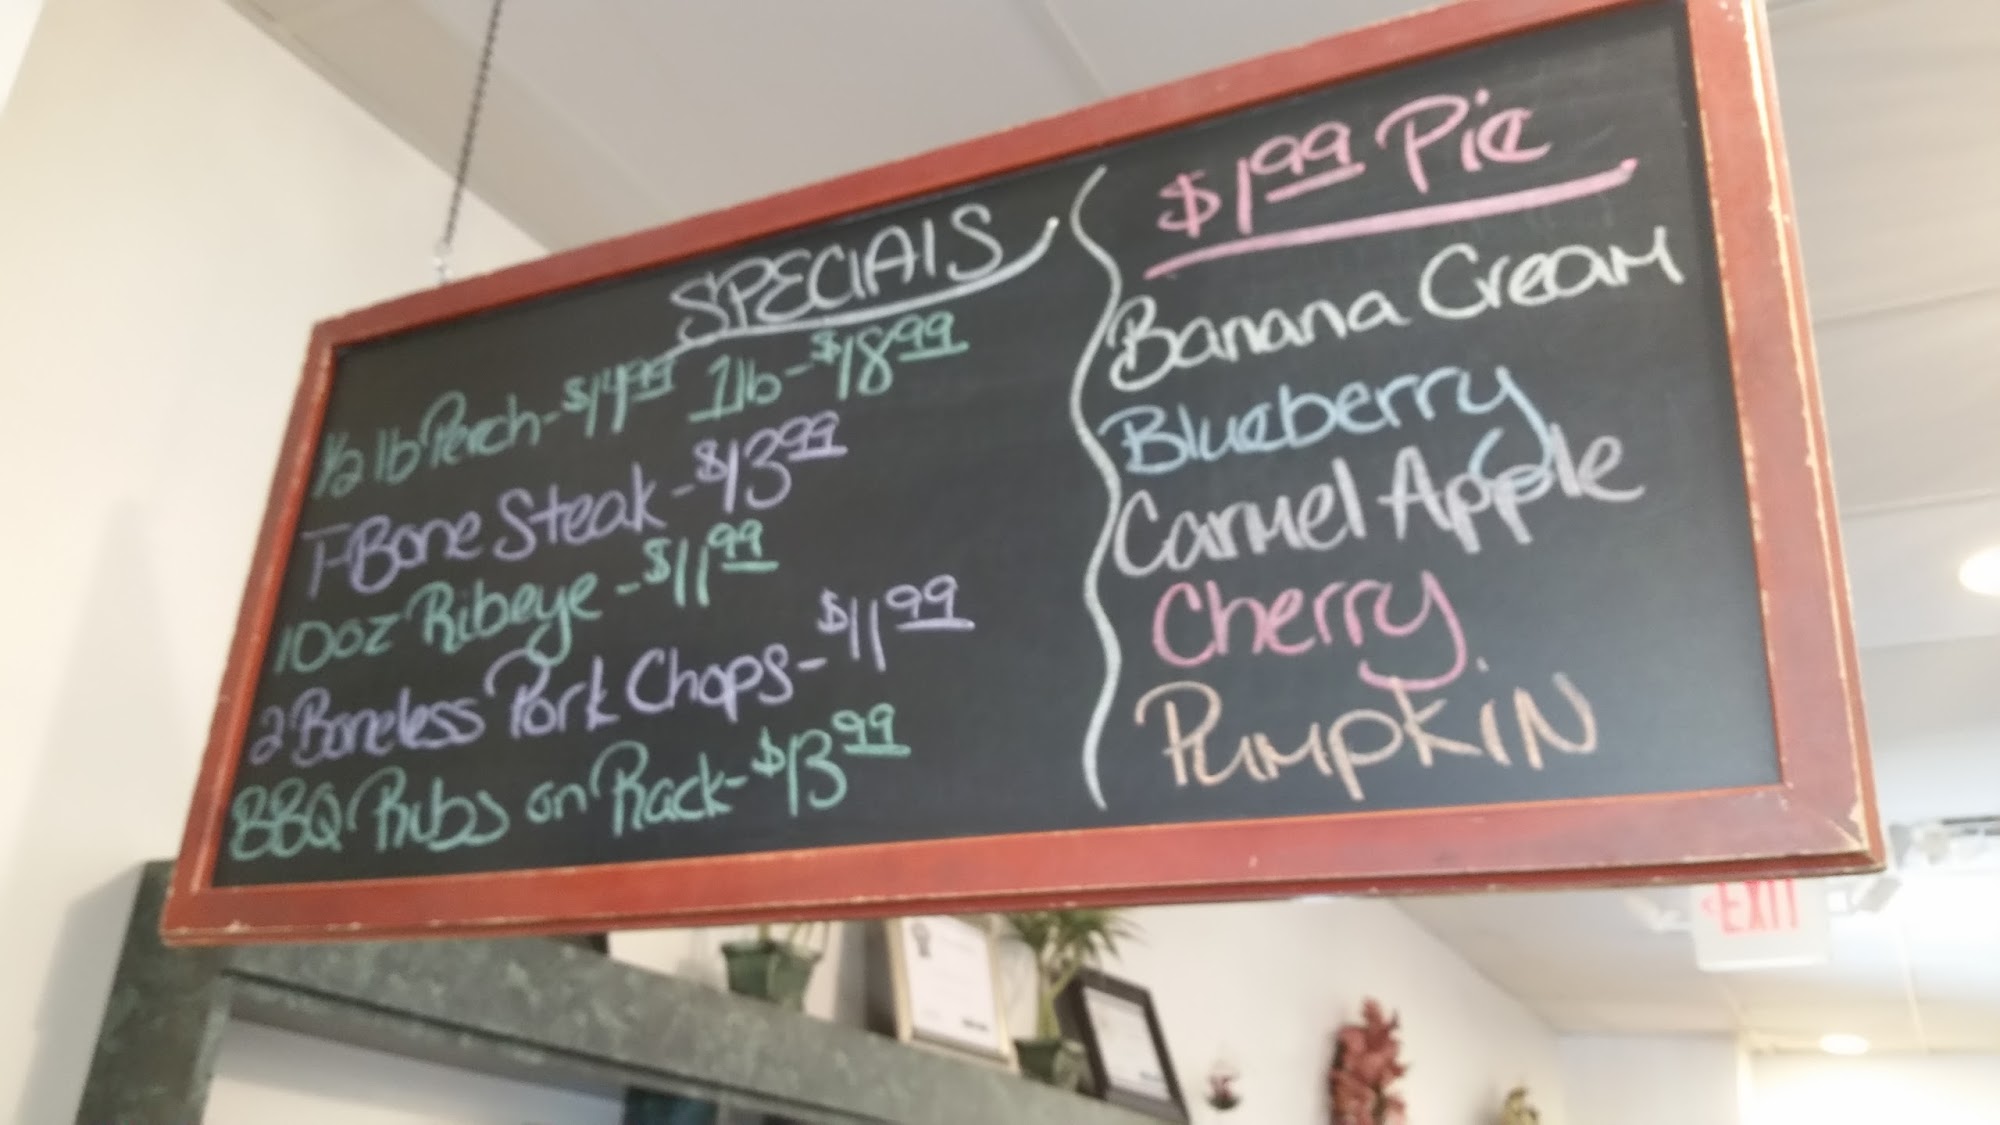 SPECIAlS
1/2 lb Perch - $14.99 1 lb - $18.99
T-Bone Steak - $13.99
10oz Ribeye - $11.99
2 Boneless Pork Chops - $11.99
BBQ Ribs on Rack - $13.99
$1.99 Pie
Banana Cream
Blueberry
Carmel Apple
Cherry
Pumpkin
EXIT